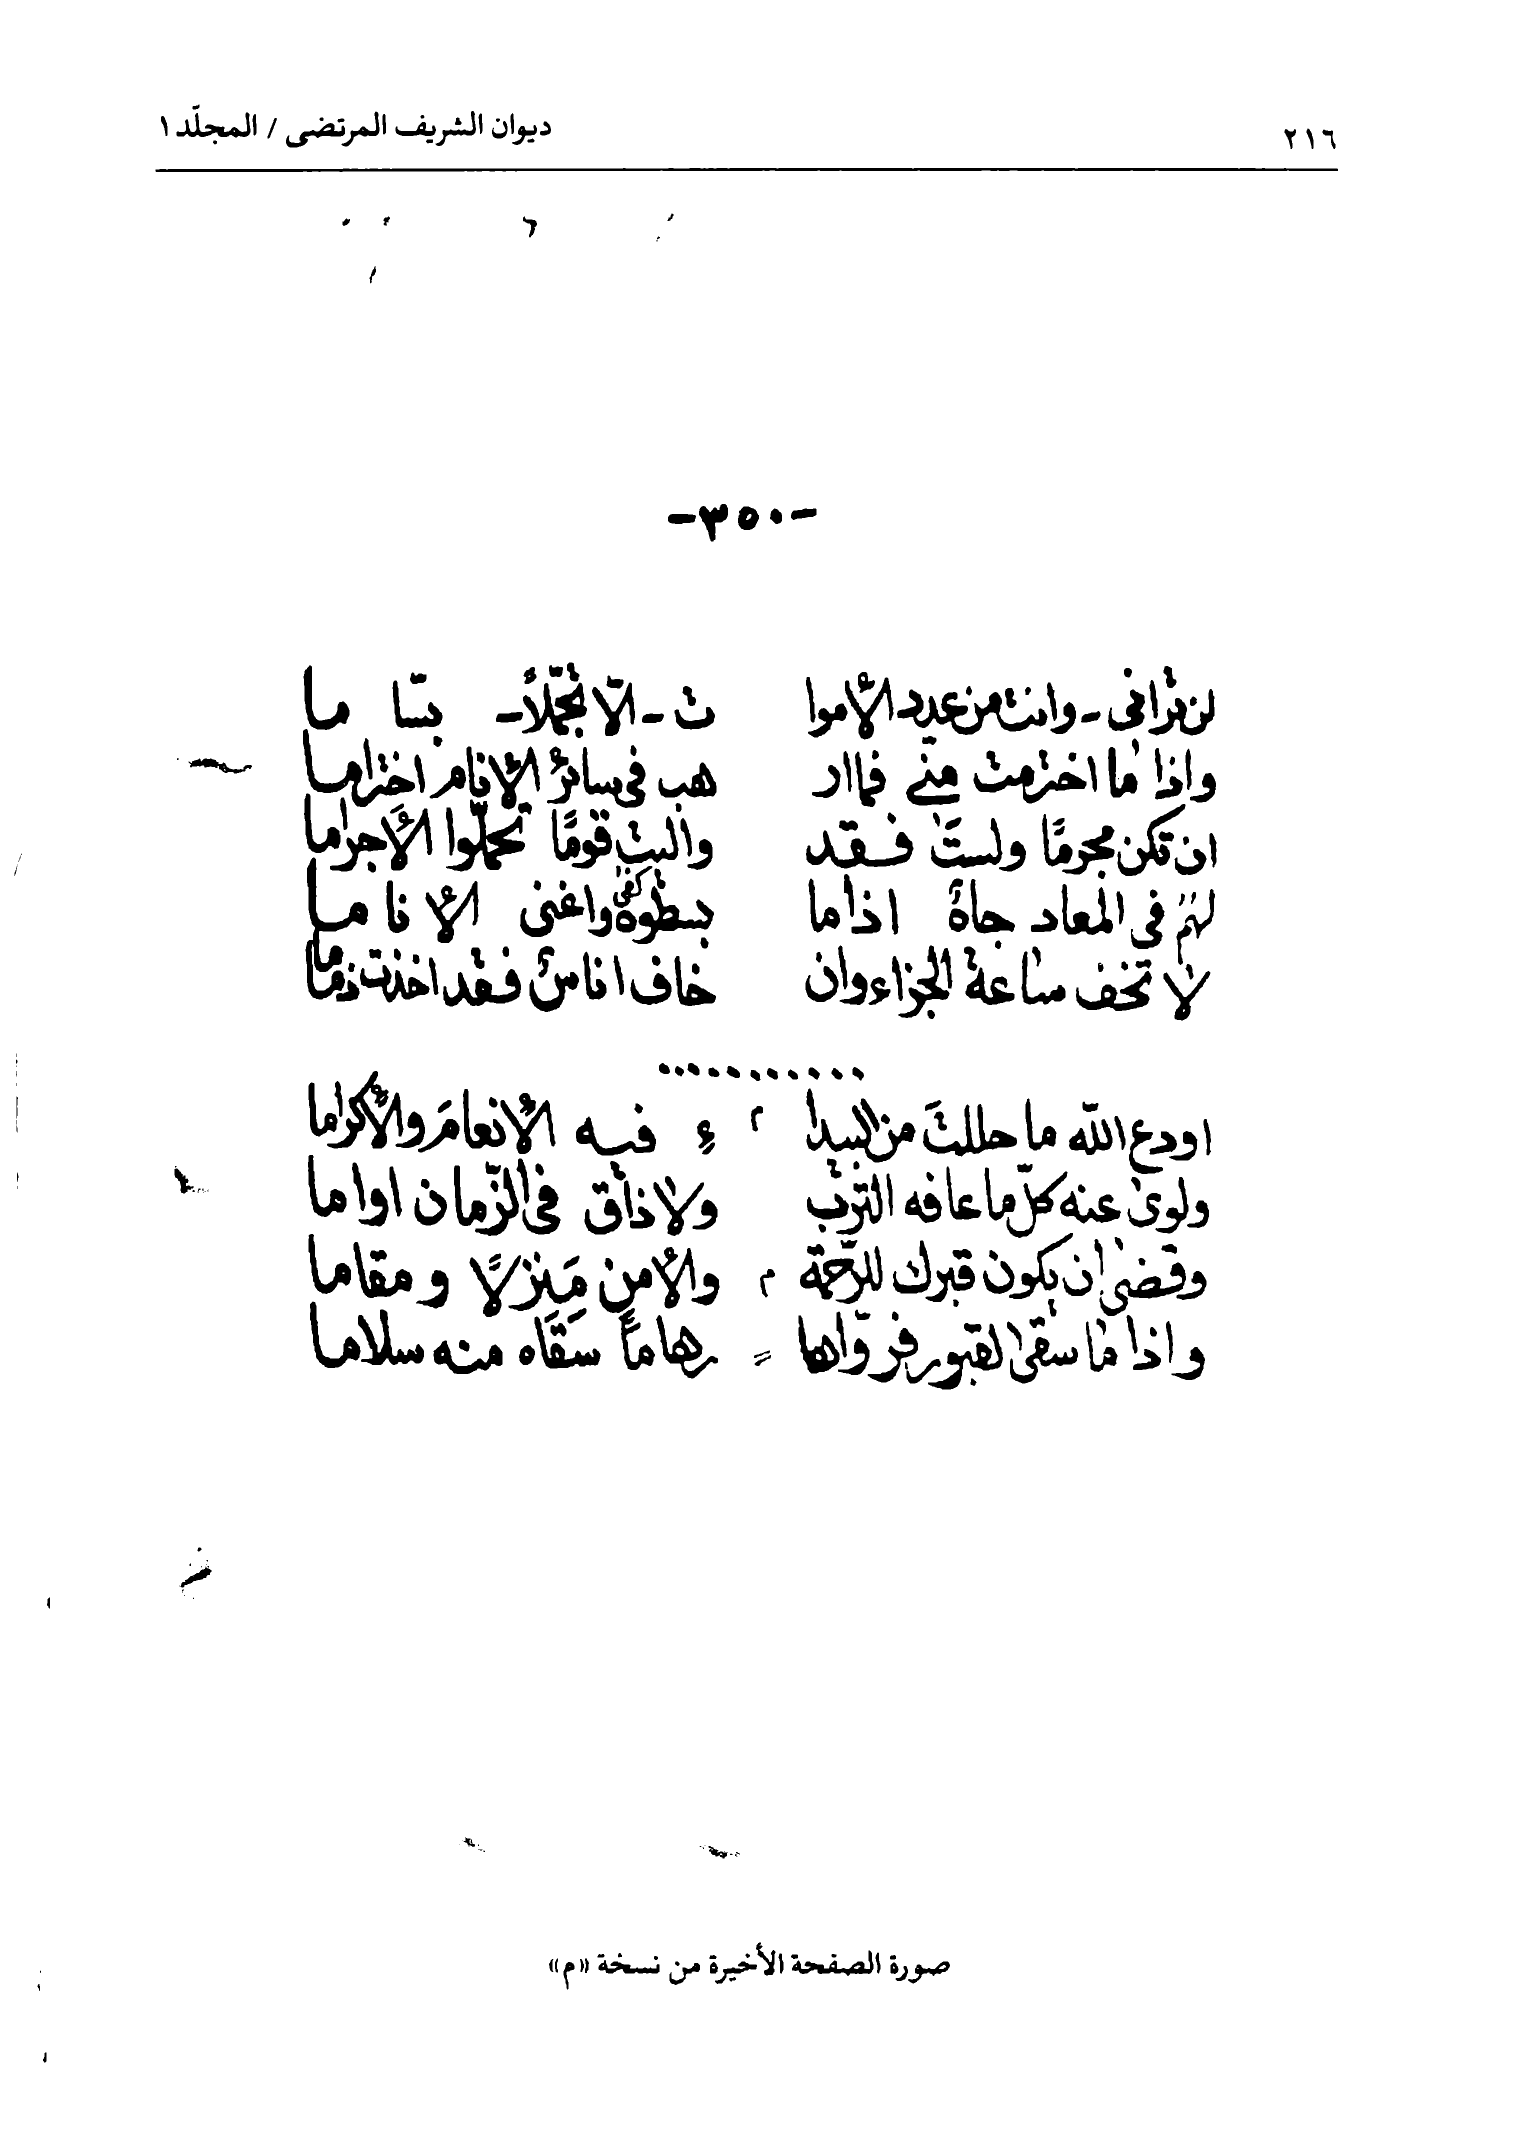 ٢١٦ ديوان الشريف المرتضى / المجلّد ١
-٣٥٠-
لن تراني - وانت من عدد الأموا ت - الّا تجمّلاً - بسّا ما
واذا ما اخترمت منّي فماار هب في سائر الأنام اختراما
ان تكن مجرمًا ولستَ فقد واليت قومًا تحمّلوا الأجراما
لهمُ في المعاد جاهٌ اذا ما بسطوهُ كفى واغنى الأناما
لا تخف ساعة الجزاء وان خاف اناسٌ فقد اخذت ذماما
...........
اودع الله ما حللتَ من البيدا ءِ فيه الأنعامَ والأكراما
ولوى عنه كلّ ما عافه الترب ولا ذاق في الزّمان اواما
وقضى ان يكون قبرك للرّحمة م والأمن مَنزلًا ومقاما
واذا ما سقى القبور فروّاها = رهاماً سَقَاه منه سلاما
صورة الصفحة الأخيرة من نسخة «م»